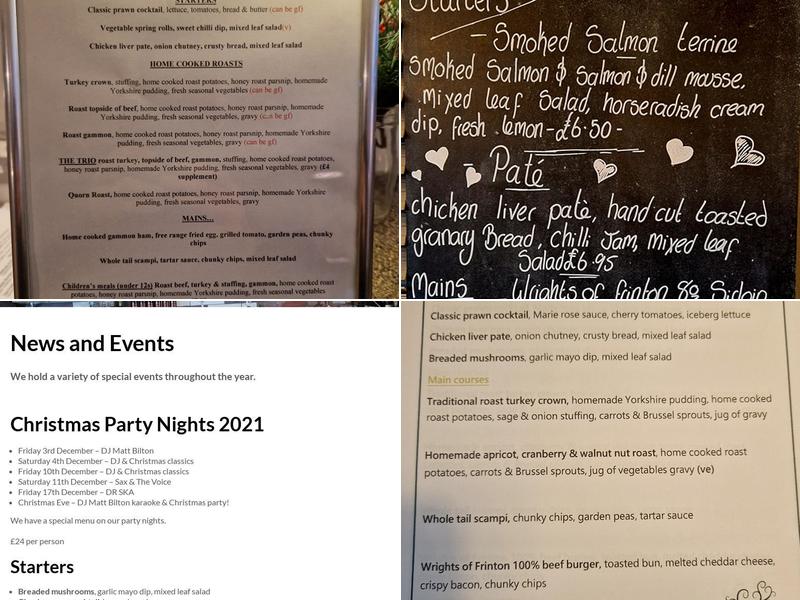 STARTERS
Classic prawn cocktail, lettuce, tomatoes, bread & butter (can be gf)
Vegetable spring rolls, sweet chilli dip, mixed leaf salad(v)
Chicken liver pate, onion chutney, crusty bread, mixed leaf salad
HOME COOKED ROASTS
Turkey crown, stuffing, home cooked roast potatoes, honey roast parsnip, homemade
Yorkshire pudding, fresh seasonal vegetables (can be gf)
Roast topside of beef, home cooked roast potatoes, honey roast parsnip, homemade
Yorkshire pudding, fresh seasonal vegetables, gravy (can be gf)
Roast gammon, home cooked roast potatoes, honey roast parsnip, homemade Yorkshire
pudding, fresh seasonal vegetables, gravy (can be gf)
THE TRIO roast turkey, topside of beef, gammon, stuffing, home cooked roast potatoes,
honey roast parsnip, homemade Yorkshire pudding, fresh seasonal vegetables, gravy (£4
supplement)
Quorn Roast, home cooked roast potatoes, honey roast parsnip, homemade Yorkshire
pudding, fresh seasonal vegetables, gravy
MAINS...
Home cooked gammon ham, free range fried egg, grilled tomato, garden peas, chunky
chips
Whole tail scampi, tartar sauce, chunky chips, mixed leaf salad
Children's meals (under 12s) Roast beef, turkey & stuffing, gammon, home cooked roast
potatoes, honey roast parsnip, homemade Yorkshire pudding, fresh seasonal vegetables
Starters
- Smoked Salmon terrine
Smoked Salmon & Salmon & dill mousse,
mixed leaf Salad, horseradish cream
dip, fresh lemon - £6.50 -
- Paté
chicken liver patè, hand cut toasted
granary Bread, chilli Jam, mixed leaf
Salad £6.95
Mains Wrights of Frinton 8oz Sirloin
News and Events
We hold a variety of special events throughout the year.
Christmas Party Nights 2021
Friday 3rd December – DJ Matt Bilton
Saturday 4th December – DJ & Christmas classics
Friday 10th December – DJ & Christmas classics
Saturday 11th December – Sax & The Voice
Friday 17th December – DR SKA
Christmas Eve – DJ Matt Bilton karaoke & Christmas party!
We have a special menu on our party nights.
£24 per person
Starters
Breaded mushrooms, garlic mayo dip, mixed leaf salad
Classic prawn cocktail, Marie rose sauce, cherry tomatoes, iceberg lettuce
Chicken liver pate, onion chutney, crusty bread, mixed leaf salad
Breaded mushrooms, garlic mayo dip, mixed leaf salad
Main courses
Traditional roast turkey crown, homemade Yorkshire pudding, home cooked
roast potatoes, sage & onion stuffing, carrots & Brussel sprouts, jug of gravy
Homemade apricot, cranberry & walnut nut roast, home cooked roast
potatoes, carrots & Brussel sprouts, jug of vegetables gravy (ve)
Whole tail scampi, chunky chips, garden peas, tartar sauce
Wrights of Frinton 100% beef burger, toasted bun, melted cheddar cheese,
crispy bacon, chunky chips